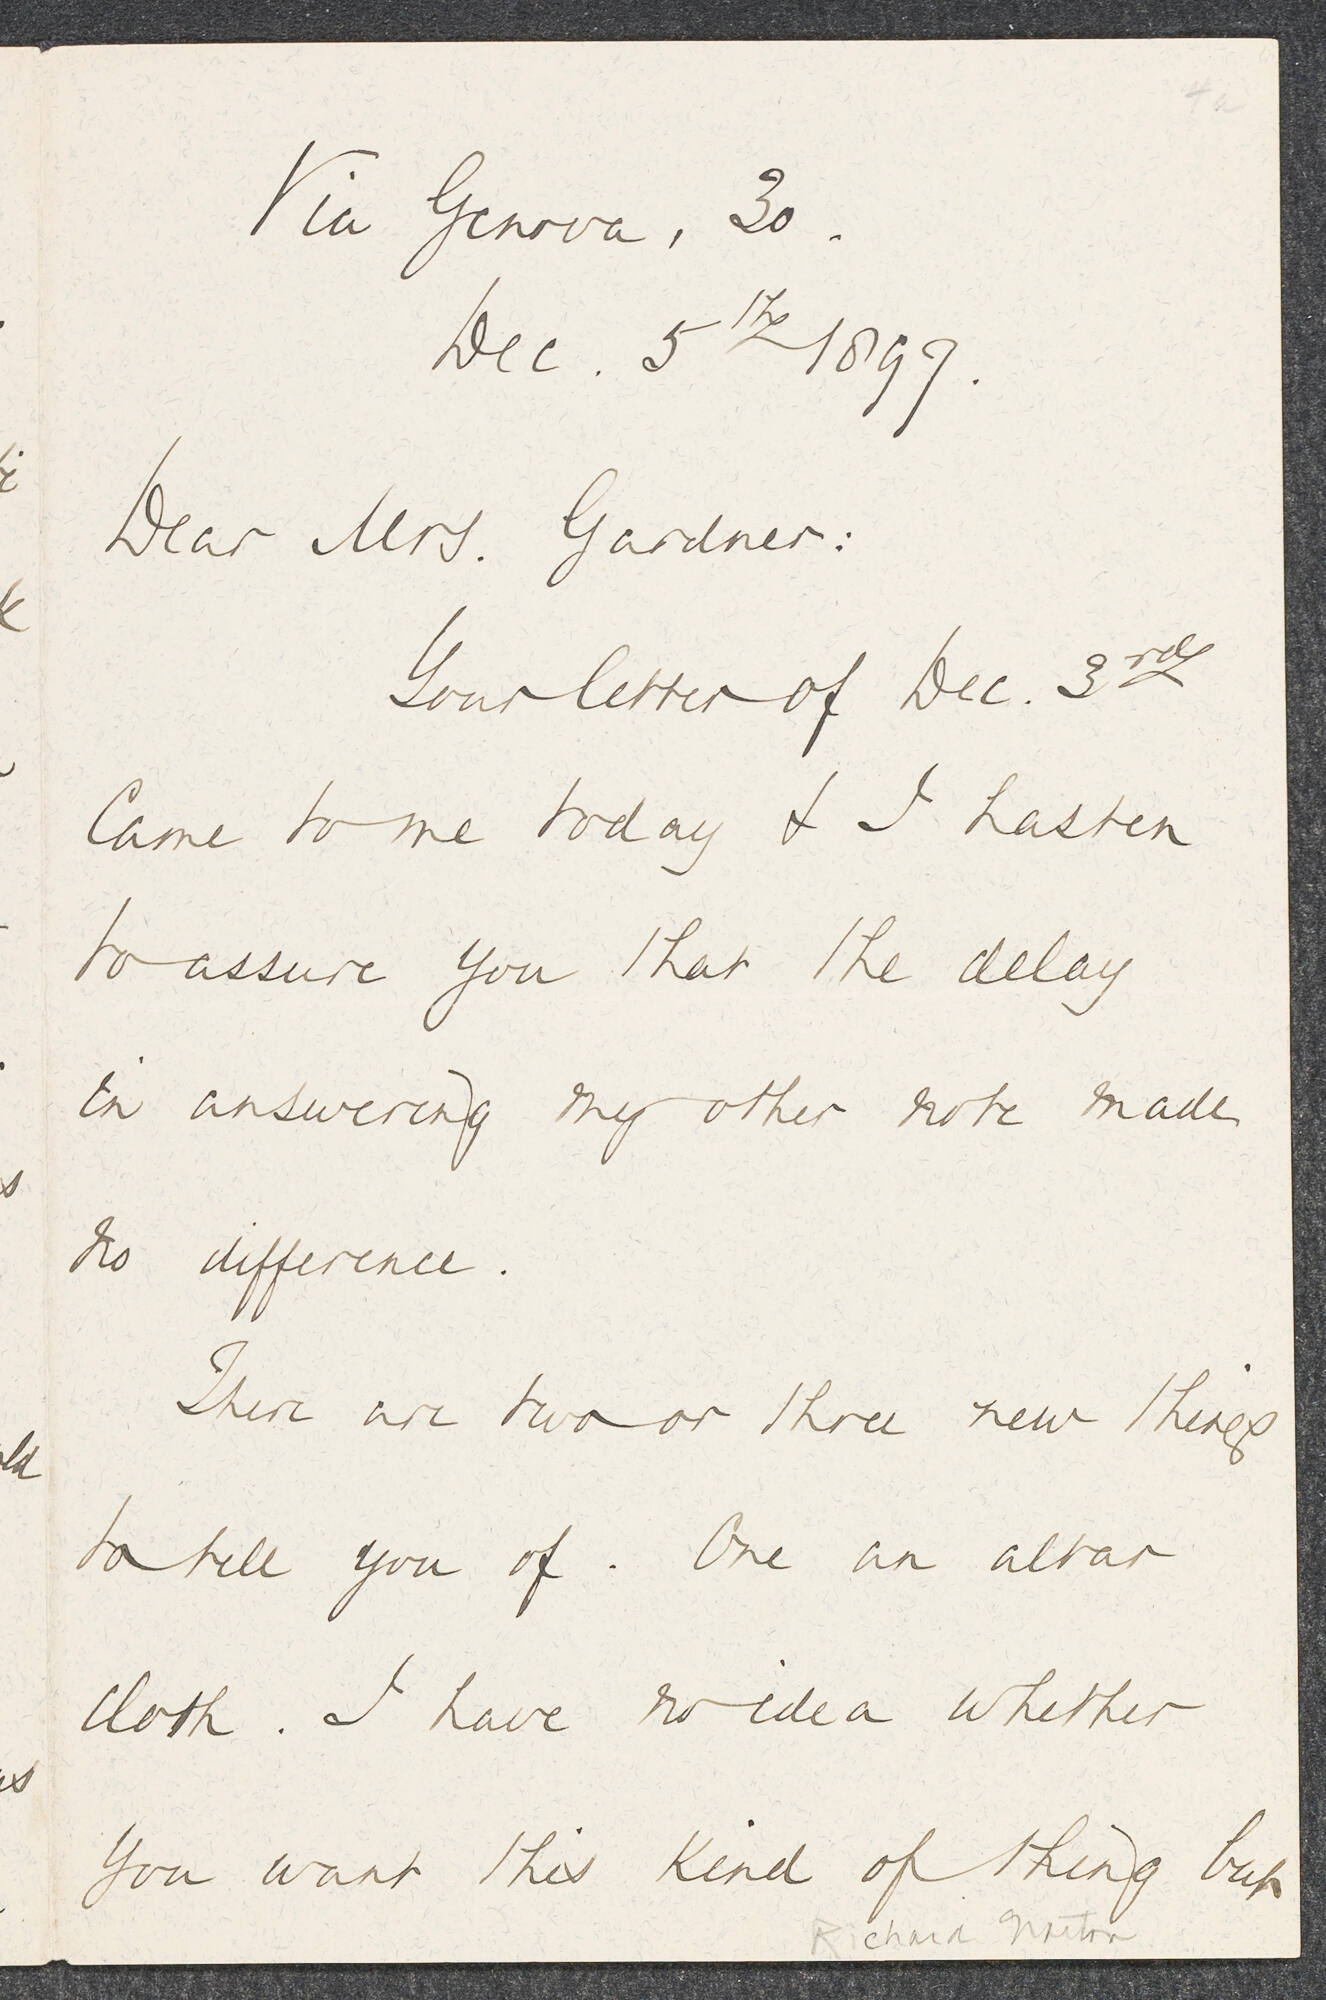 4a
Via Genova, 30.
Dec. 5th 1897.
Dear Mrs. Gardner:
Your letter of Dec. 3rd
Came to me today & I hasten
to assure you that the delay
in answering my other note made
no difference.
There are two or three new things
to tell you of. One an altar
cloth. I have no idea whether
you want this kind of thing but
Richard Norton